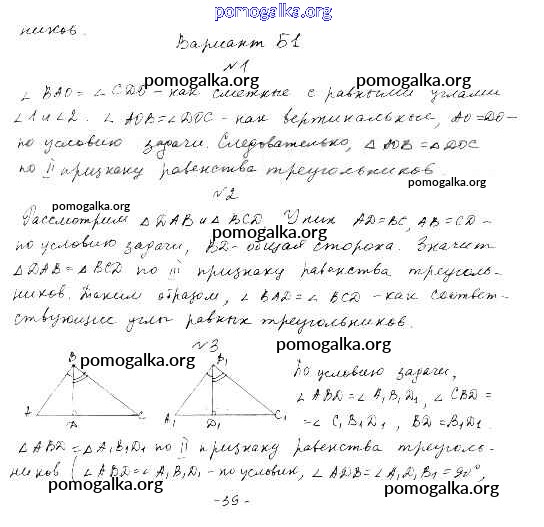 pomogalka.org
ников.
Вариант Б1
№1
pomogalka.org pomogalka.org
∠ BAO = ∠ CDO - как смежные с равными углами
∠1 и ∠2. ∠ AOB = ∠ DOC - как вертикальные, AO = DO -
по условию задачи. Следовательно, △ AOB = △ DOC
по II признаку равенства треугольников.
pomogalka.org
№2
pomogalka.org
Рассмотрим △ DAB и △ BCD. У них AD = BC, AB = CD -
по условию задачи, BD - общая сторона. Значит
△ DAB = △ BCD по III признаку равенства треуголь-
ников. Таким образом, ∠ BAD = ∠ BCD - как соответ-
ствующие углы равных треугольников.
№3
pomogalka.org pomogalka.org
B B1
По условию задачи,
∠ ABD = ∠ A1B1D1, ∠ CBD =
= ∠ C1B1D1, BD = B1D1.
A D C A1 D1 C1
△ ABD = △ A1B1D1 по II признаку равенства треуголь-
ников (∠ ABD = ∠ A1B1D1 - по условию, ∠ ADB = ∠ A1D1B1 = 90°,
pomogalka.org pomogalka.org
- 39 -